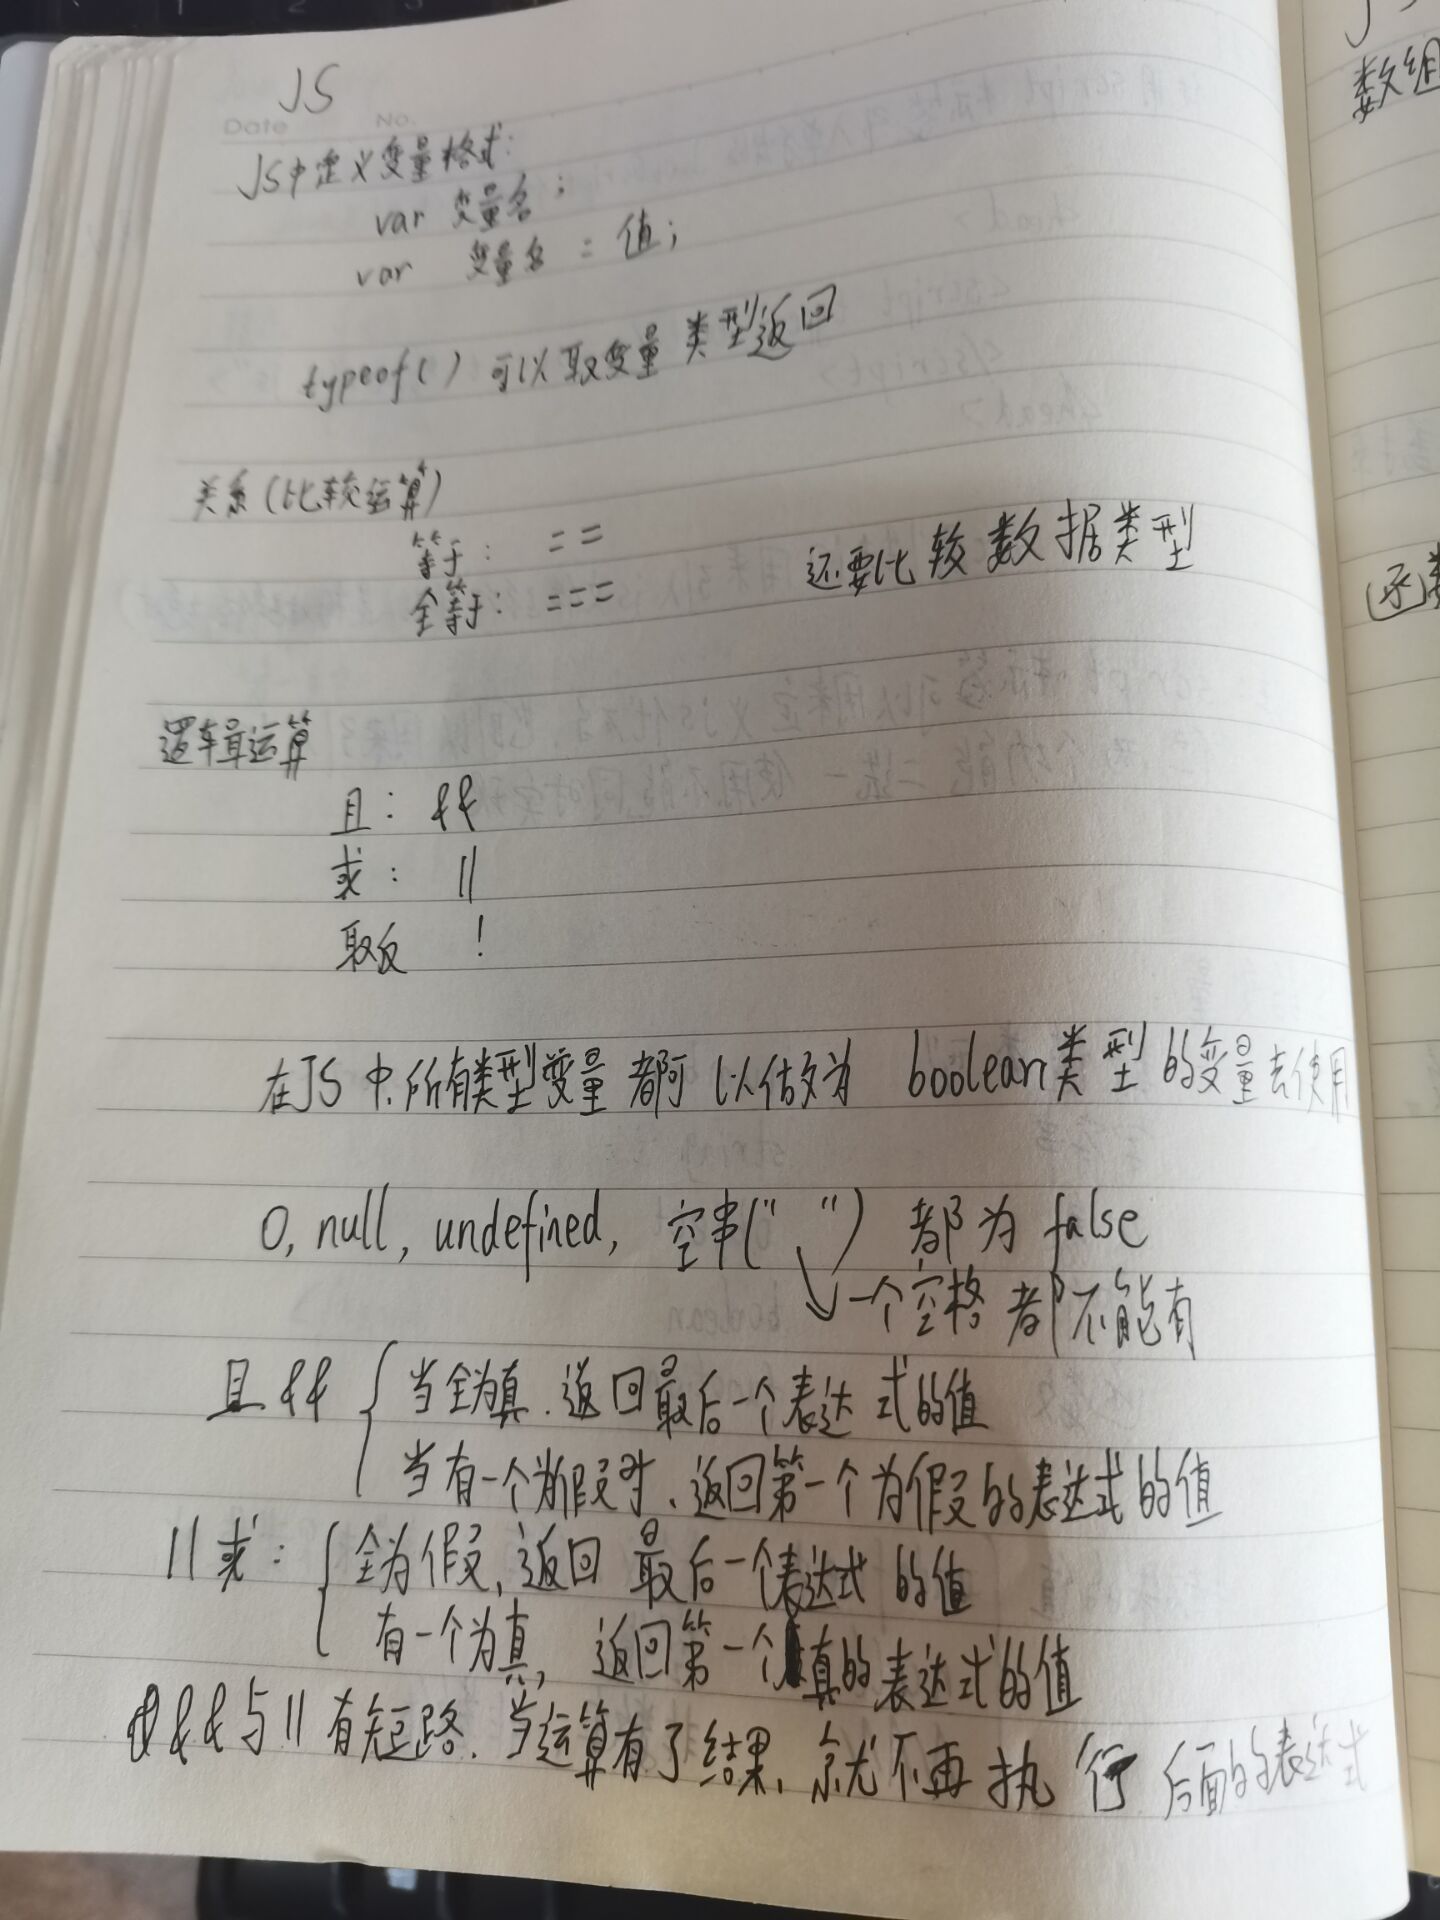 JS
Date No.
JS中定义变量格式:
var 变量名;
var 变量名 = 值;
typeof() 可以取变量类型返回
关系(比较运算)
等于: ==
全等于: === 还要比较数据类型
逻辑运算
且: &&
或: ||
取反 !
在JS中,所有类型变量都可以做为 boolean类型的变量去使用
0, null, undefined, 空串(" ") 都为 false
一个空格都不能有
且 && 当全为真, 返回最后一个表达式的值
当有一个为假时, 返回第一个为假的表达式的值
|| 或: 全为假, 返回最后一个表达式的值
有一个为真, 返回第一个真的表达式的值
&&与||有短路. 当运算有了结果, 就不再执行后面的表达式
数组
函数